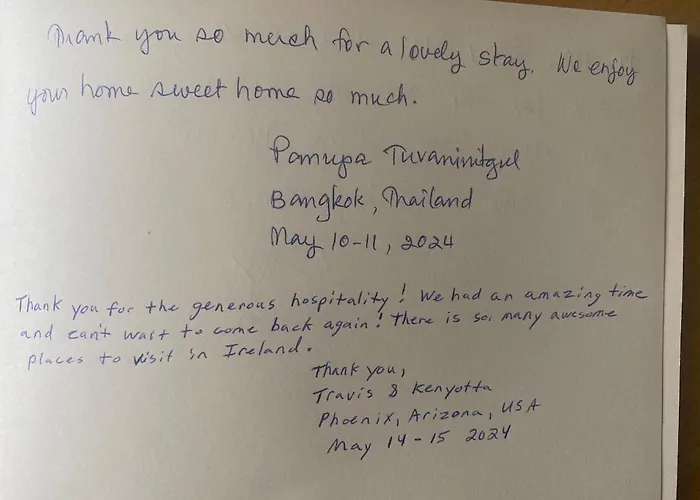 Thank you so much for a lovely stay. We enjoy
your home sweet home so much.
Pamupa
Bangkok, Thailand
May 10-11, 2024
Thank you for the generous hospitality! We had an amazing time
and can't wait to come back again! There is so many awesome
places to visit in Ireland.
Thank you,
Travis & Kenyotta
Phoenix, Arizona, USA
May 14-15 2024